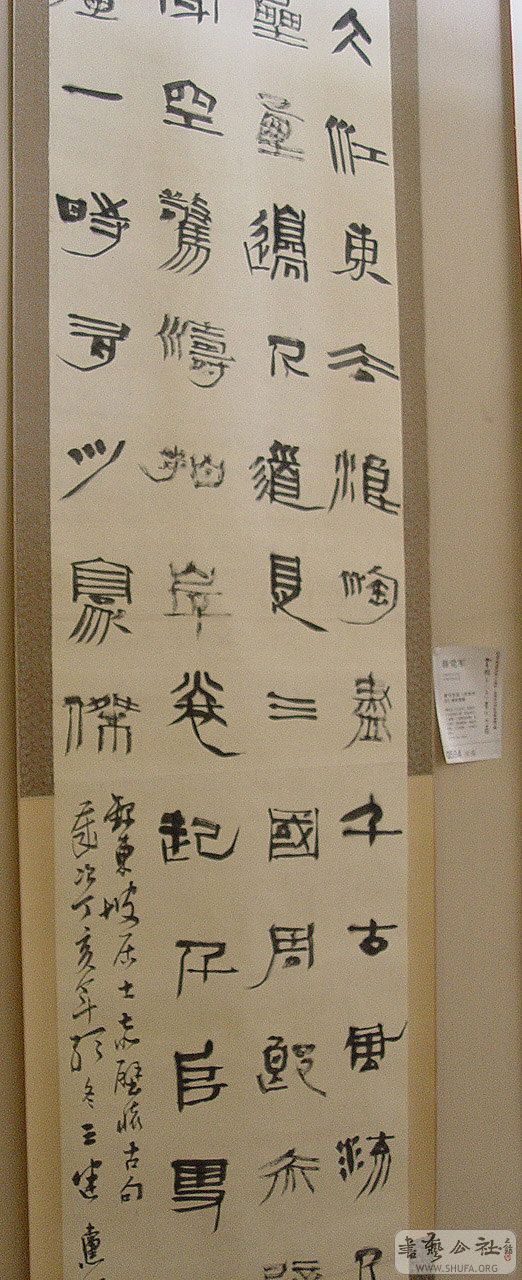 大江東去浪淘盡千古風流人
壘邊人道是三國周郎赤
空驚濤拍岸卷起仟
畫一時多少豪傑
錄東坡居士赤壁懷古句
歲次丁亥年初冬王建
書藝公社
WWW.SHUFA.ORG